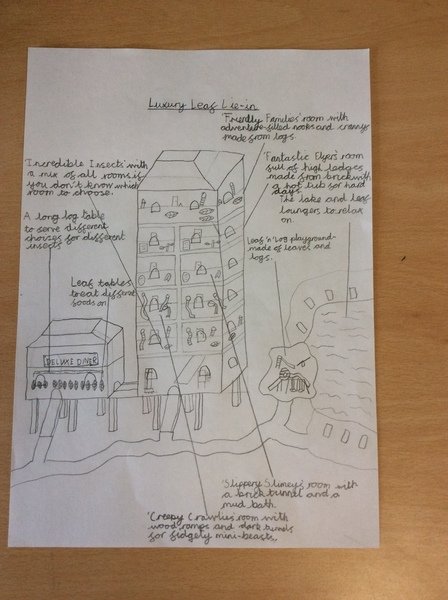 Luxury Leaf Lie-in
'Friendly Families' room with
adventure-filled nooks and crannys
made from logs.
'Incredible Insects' with
a mix of all rooms if
you don't know which
room to choose.
'Fantastic Flyers' room
full of high ledges
made from brick with
a hot tub for hard
days.
The lake and leaf
loungers to relax
on.
A long log table
to serve different
choises for different
insects
Leaf 'n' Log playground-
made of leaves and
logs.
Leaf tables
to eat different
foods on
DELUXE DINER
'Slippery Slimeys' room with
a brick tunnel and a
mud bath.
'Creepy Crawlies' room with
wood ramps and dark tunnels
for fidgety mini-beasts.